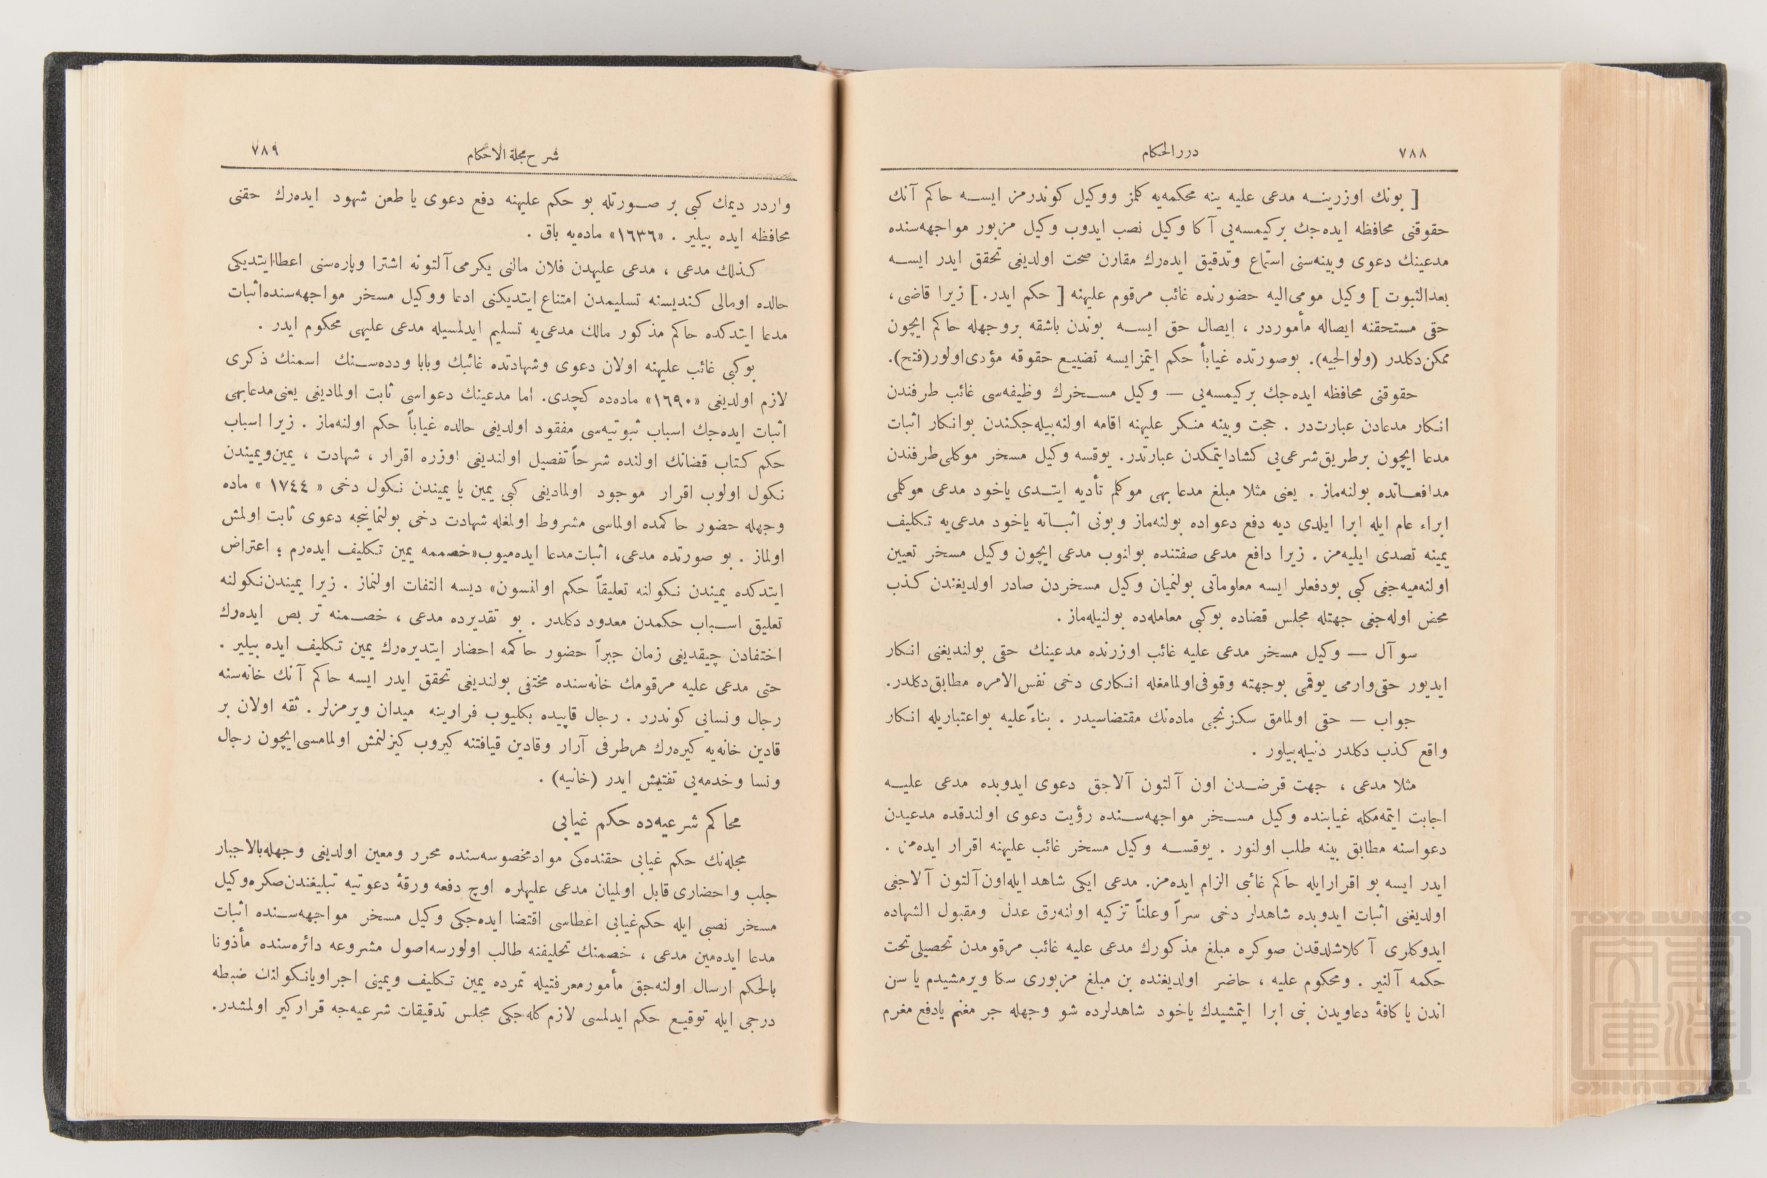 ٧٨٨
درر الحكام
[ بونك اوزرينه مدعى عليه ينه محكمه‌يه كلمز ووكيل كوندرمز ايسه حاكم آنك
حقوقنى محافظه ايده‌جك بركيمسه‌يى آكا وكيل نصب ايدوب وكيل مزبور مواجهه‌سنده
مدعينك دعوى وبينه‌سنى استماع وتدقيق ايده‌رك مقارن صحت اولديغى تحقق ايدر ايسه
بعدالثبوت ] وكيل مومى‌اليه حضورنده غائب مرقوم عليهنه [ حكم ايدر. ] زيرا قاضى،
حقى مستحقنه ايصاله مأموردر ، ايصال حق ايسه بوندن باشقه بروجهله حاكم ايچون
ممكن‌دكلدر (ولوالجيه). بوصورتده غياباً حكم ايتمزايسه تضييع حقوقه مؤدى‌اولور(فتح).
حقوقنى محافظه ايده‌جك بركيمسه‌يى — وكيل مسخرك وظيفه‌سى غائب طرفندن
انكار مدعادن عبارت‌در . حجت وبينه منكر عليهنه اقامه اولنه‌بيله‌جكندن بوانكار اثبات
مدعا ايچون برطريق‌شرعى‌يى كشادايتمكدن عبارتدر. يوقسه وكيل مسخر موكلى‌طرفندن
مدافعاتده بولنه‌ماز . يعنى مثلا مبلغ مدعا بهى موكلم تأديه ايتدى ياخود مدعى موكلمى
ابراء عام ايله ابرا ايلدى ديه دفع دعواده بولنه‌ماز وبونى اثباته ياخود مدعى‌يه تكليف
يمينه تصدى ايليه‌مز . زيرا دافع مدعى صفتنده بولنوب مدعى ايچون وكيل مسخر تعيين
اولنه‌ميه‌جغى كبى بودفعلر ايسه معلوماتى بولنميان وكيل مسخردن صادر اولديغندن كذب
محض اوله‌جغى جهتله مجلس قضاده بوكبى معامله‌ده بولنيله‌ماز .
سوآل — وكيل مسخر مدعى عليه غائب اوزرنده مدعينك حقى بولنديغنى انكار
ايديور حقى‌وارمى يوقمى بوجهته وقوفى‌اولمامغله انكارى دخى نفس‌الامره مطابق‌دكلدر.
جواب — حقى اولمامق سكزنجى ماده‌نك مقتضاسيدر . بناءً عليه بواعتباريله انكار
واقع كذب دكلدر دنيله‌بيلور .
مثلا مدعى ، جهت قرضدن اون آلتون آلاجق دعوى ايدوبده مدعى عليه
اجابت ايتمه‌مكله غيابنده وكيل مسخر مواجهه‌سنده رؤيت دعوى اولندقده مدعيدن
دعواسنه مطابق بينه طلب اولنور . يوقسه وكيل مسخر غائب عليهنه اقرار ايده‌مز .
ايدر ايسه بو اقرارايله حاكم غائبى الزام ايده‌مز. مدعى ايكى شاهدايله‌اون‌آلتون آلاجغى
اولديغنى اثبات ايدوبده شاهدلر دخى سراً وعلناً تزكيه اولنه‌رق عدل ومقبول الشهاده
ايدوكلرى آكلاشلدقدن صوكره مبلغ مذكورك مدعى عليه غائب مرقومدن تحصيلى‌تحت
حكمه آلنير . ومحكوم عليه ، حاضر اولديغنده بن مبلغ مزبورى سكا ويرمشيدم يا سن
اندن يا كافهٔ دعاويدن بنى ابرا ايتمشيدك ياخود شاهدلرده شو وجهله جر مغنم يادفع مغرم
٧٨٩
شرح مجلة الاحكام
واردر ديمك كبى بر صورتله بو حكم عليهنه دفع دعوى يا طعن شهود ايده‌رك حقنى
محافظه ايده بيلير . «١٦٣٦» ماده‌يه باق .
كذلك مدعى ، مدعى عليهدن فلان مالنى يكرمى‌آلتونه اشترا وپاره‌سنى اعطاايتديكى
حالده اومالى كنديسنه تسليمدن امتناع ايتديكنى ادعا ووكيل مسخر مواجهه‌سنده‌اثبات
مدعا ايتدكده حاكم مذكور مالك مدعى‌يه تسليم ايدلمسيله مدعى عليهى محكوم ايدر .
بوكبى غائب عليهنه اولان دعوى وشهادتده غائبك وبابا ودده‌سنك اسمنك ذكرى
لازم اولديغى «١٦٩٠» ماده‌ده كچدى. اما مدعينك دعواسى ثابت اولماديغى يعنى‌مدعابهى
اثبات ايده‌جك اسباب ثبوتيه‌سى مفقود اولديغى حالده غياباً حكم اولنه‌ماز . زيرا اسباب
حكم كتاب قضانك اولنده شرحاً تفصيل اولنديغى اوزره اقرار ، شهادت ، يمين‌ويميندن
نكول اولوب اقرار موجود اولماديغى كبى يمين يا يميندن نكول دخى « ١٧٤٤ » ماده
وجهله حضور حاكمده اولماسى مشروط اولمغله شهادت دخى بولنماينجه دعوى ثابت اولمش
اولماز . بو صورتده مدعى، اثبات‌مدعا ايده‌ميوب«خصممه يمين تكليف ايده‌رم ؛ اعتراض
ايتدكده يميندن نكولنه تعليقاً حكم اولنسون» ديسه التفات اولنماز . زيرا يميندن‌نكولنه
تعليق اسباب حكمدن معدود دكلدر . بو تقديرده مدعى ، خصمنه تربص ايده‌رك
اختفادن چيقديغى زمان جبراً حضور حاكمه احضار ايتديره‌رك يمين تكليف ايده بيلير .
حتى مدعى عليه مرقومك خانه‌سنده مختفى بولنديغى تحقق ايدر ايسه حاكم آنك خانه‌سنه
رجال ونسايى كوندرر . رجال قاپيده بكليوب فرارينه ميدان ويرمزلر . ثقه اولان بر
قادين خانه‌يه كيره‌رك هرطرفى آرار وقادين قيافتنه كيروب كيزلنمش اولمامسى‌ايچون رجال
ونسا وخدمه‌يى تفتيش ايدر (خانيه) .
محاكم شرعيه‌ده حكم غيابى
مجله‌نك حكم غيابى حقنده‌كى موادمخصوصه‌سنده محرر ومعين اولديغى وجهله‌بالاجبار
جلب واحضارى قابل اولميان مدعى عليهلره اوچ دفعه ورقهٔ دعوتيه تبليغندن‌صكره‌وكيل
مسخر نصبى ايله حكم‌غيابى اعطاسى اقتضا ايده‌جكى وكيل مسخر مواجهه‌سنده اثبات
مدعا ايده‌مين مدعى ، خصمنك تحليفنه طالب اولورسه‌اصول مشروعه دائره‌سنده مأذونا
بالحكم ارسال اولنه‌جق مأمورمعرفتيله تمرده يمين تكليف ويمينى اجراويانكولنك ضبطه
درجى ايله توقيع حكم ايدلمسى لازم كله‌جكى مجلس تدقيقات شرعيه‌جه قراركير اولمشدر.
TOYO BUNKO
東洋文庫
TOYO BUNKO